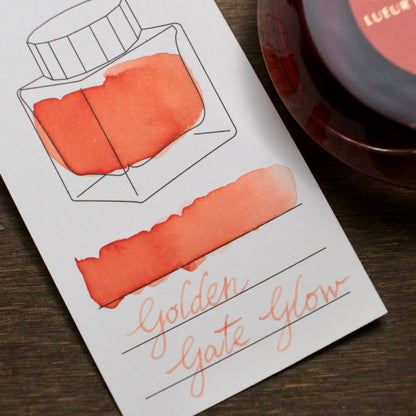 LUEUR
Golden
Gate Glow